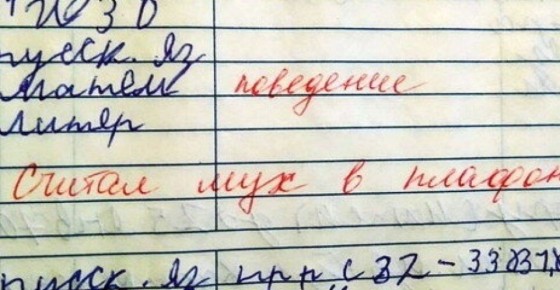 ИЗО
русск. яз
матем поведение
литер
Считал мух в плафон
русск. яз упр с 32 - 33